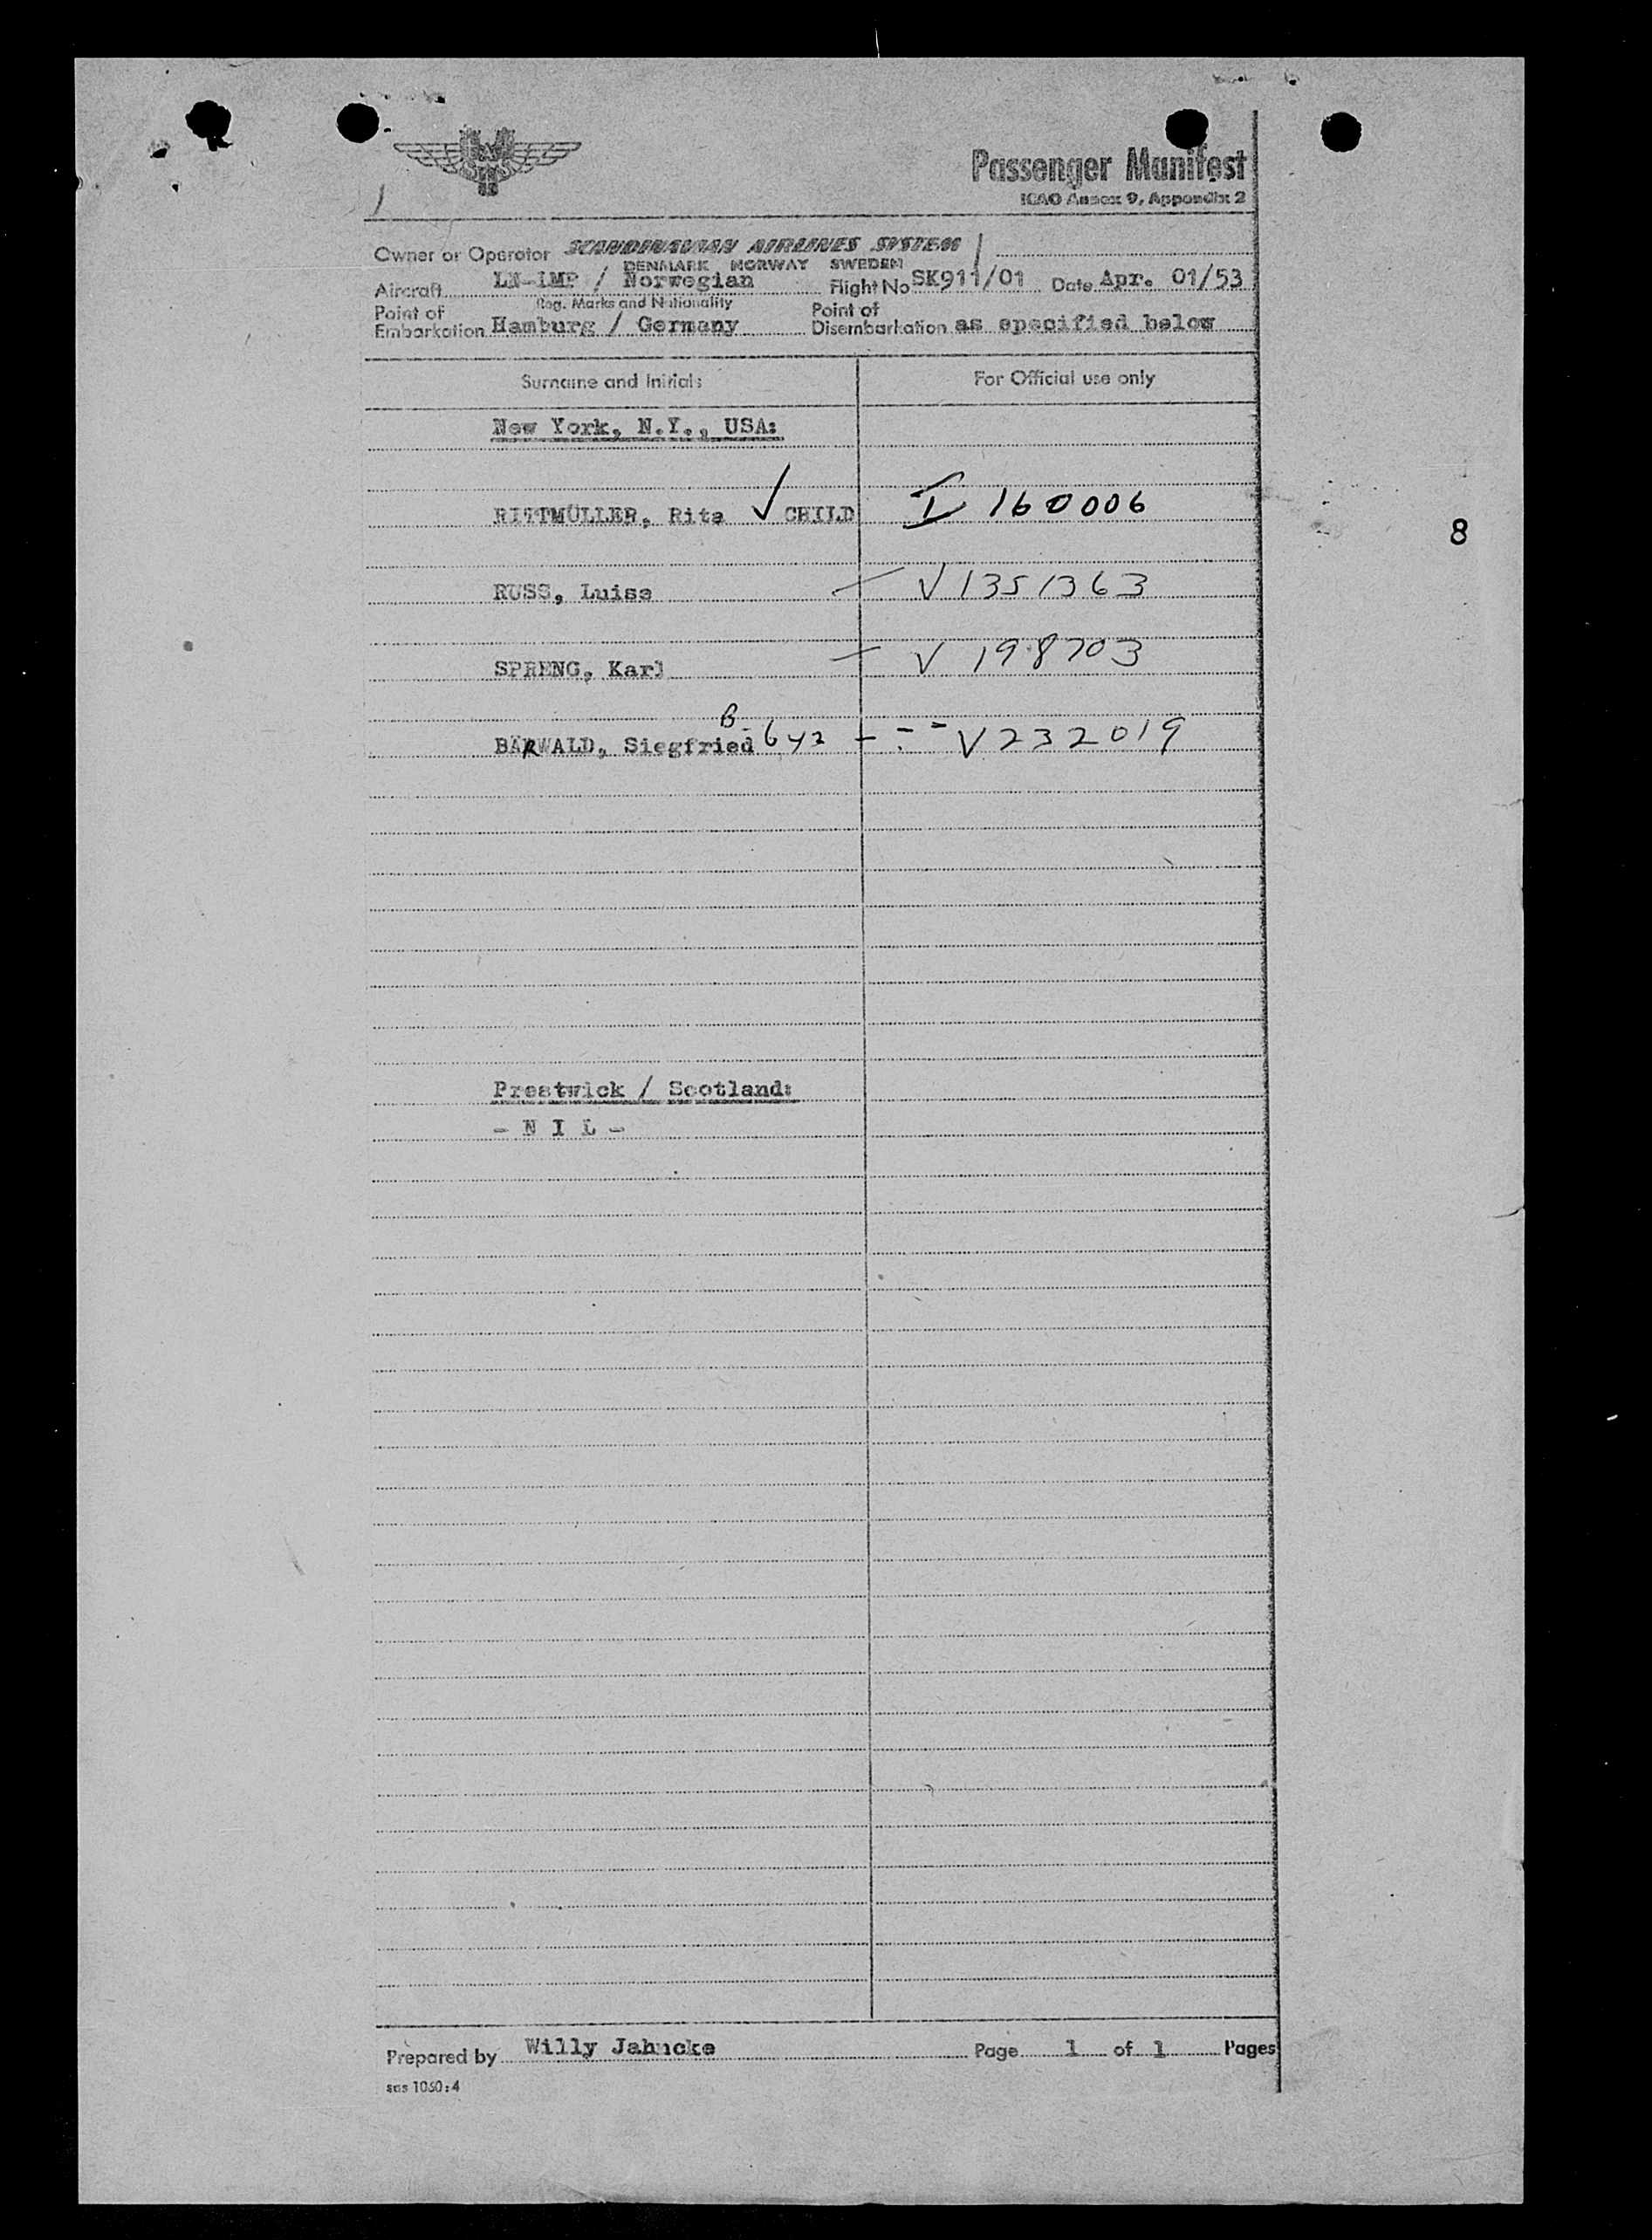 Passenger Manifest
ICAO Annex 9, Appendix 2
Owner or Operator SCANDINAVIAN AIRLINES SYSTEM
DENMARK NORWAY SWEDEN
Aircraft LN-LMP / Norwegian Flight No SK911/01 Date Apr. 01/53
Reg. Marks and Nationality
Point of Embarkation Hamburg / Germany Point of Disembarkation as specified below
Surname and Initials For Official use only
New York, N.Y., USA:
RITTMÜLLER, Rita ✓ CHILD I 160006
8
RUSS, Luise V 1351363
SPRENG, Karl V 198703
B
BÄRWALD, Siegfried - V 232019
Prestwick / Scotland:
- N I L -
Prepared by Willy Jahncke Page 1 of 1 Pages
sas 1060:4